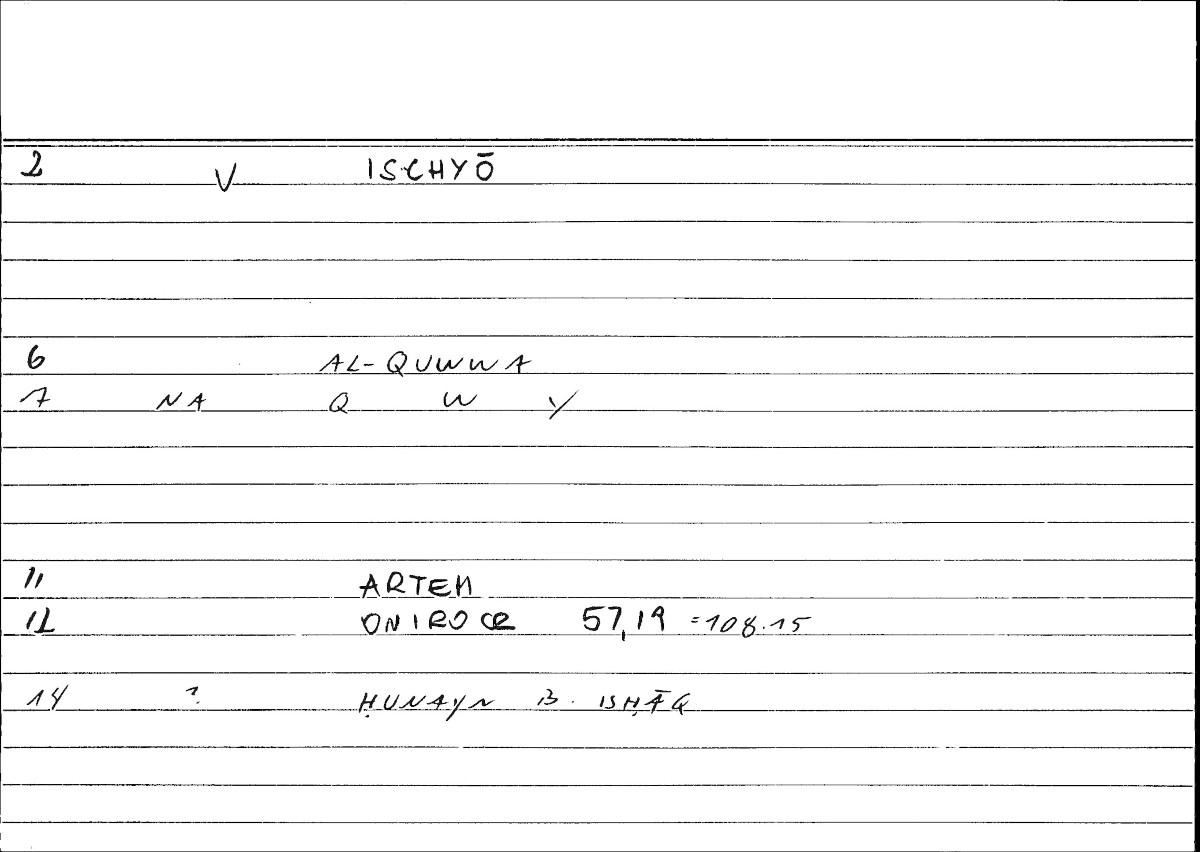 2 V ISCHYŌ
6 AL-QUWWA
7 NA Q W Y
11 ARTEM
12 ONIROCR 57,19 =108.15
14 ? ḤUNAYN B. ISḤĀQ